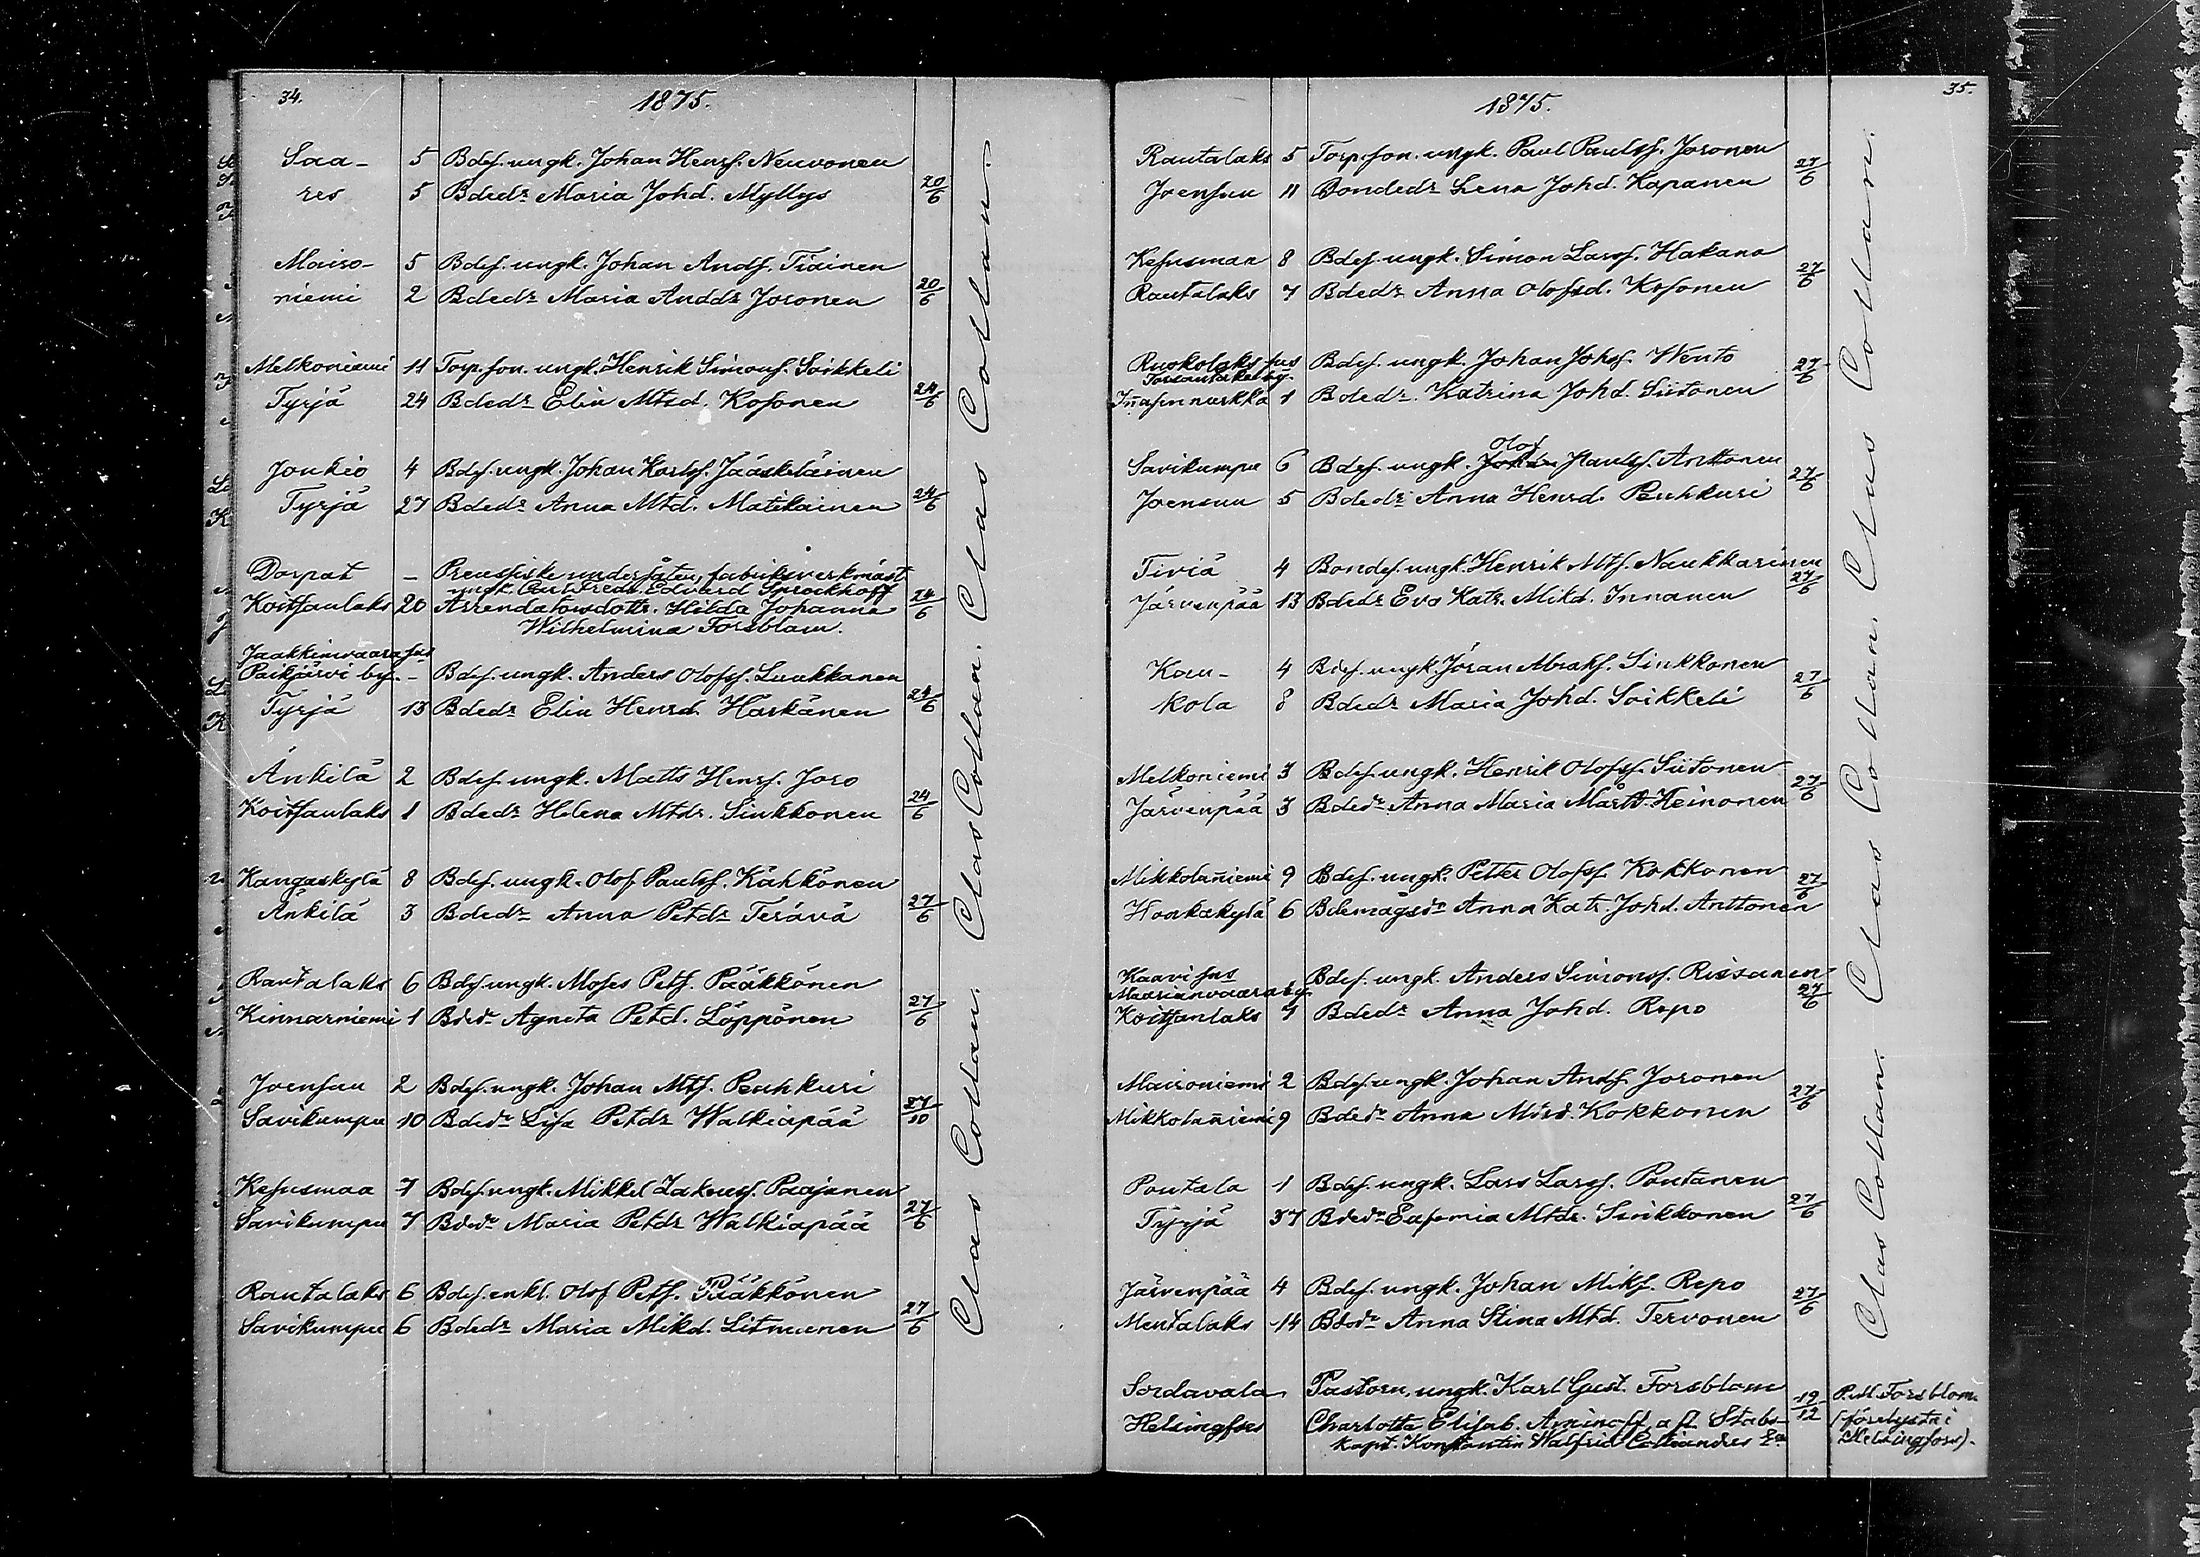 34.
1875.
Saa- 5 Bdes. ungk. Johan Henrs. Neuvonen
res 5 Bdedr Maria Johd. Myllys 20/6
Mairo- 5 Bdes. ungk. Johan Ands. Tiainen
niemi 2 Bdedr Maria Anddr Joronen 20/6
Melkoniemi 11 Torp.son. ungk. Henrik Simons. Soikkeli
Tyrjä 24 Bdedr Elin Mtsd. Kosonen 24/6
Joukio 4 Bdes. ungk. Johan Karls. Jääskeläinen
Tyrjä 27 Bdedr Anna Mtd. Matikainen 24/6
Dorpat - Preussiske undersåten, fabriksverkmäst.
ungk. Carl Fredr. Edvard Sprockhoff
Koitsanlaks 20 Arrendatorsdottr. Hilda Johanna 24/6
Wilhelmina Forsblom.
Jaakkimvaara sns
Paikjärvi by. - Bdes. ungk. Anders Olofss. Luukkanen
Tyrjä 13 Bdedr Elin Henrd. Härkänen 24/6
Änkilä 2 Bdes. ungk. Matts Henrs. Joro
Koitsanlaks 1 Bdedr Helena Mtdr. Sinkkonen 24/6
Kangaskylä 8 Bdes. ungk. Olof Paulss. Kähkönen
Änkilä 3 Bdedr Anna Petdr Terävä 27/6
Rautalaks 6 Bdes. ungk. Moses Pets. Pääkkönen
Kinnarniemi 1 Bdedr Agneta Petd. Löppönen 27/6
Joensuu 2 Bdes. ungk. Johan Mts. Peuhkuri
Savikumpu 10 Bdedr Lisa Petdr Walkiapää 27/10
Kesusmaa 7 Bdes. ungk. Mikkel Zakeuss. Paajanen
Savikumpu 7 Bdedr Maria Petdr Walkiapää 27/6
Rautalaks 6 Bdes. enkl. Olof Pets. Pääkkönen
Savikumpu 6 Bdedr Maria Mikd. Litmanen 27/6
Clas Collan. Clas Collan. Clas Collan. Clas Collan.
35.
1875.
Rautalaks 5 Torp.son. ungk. Paul Paulss. Joronen
Joensuu 11 Bondedr Lena Johd. Kapanen 27/6
Kesusmaa 8 Bdes. ungk. Simon Larss. Hakana
Rautalaks 7 Bdedr Anna Olofsd. Kosonen 27/6
Ruokolaks sns Bdes. ungk. Johan Johss. Wento 27/6
Innasennurkka 1 Bdedr. Katrina Johd. Siitonen
Olof
Savikumpu 6 Bdes. ungk. Johan Paulss. Anttonen
Joensuu 5 Bdedr Anna Henrd. Peuhkuri 27/6
Tiviä 4 Bondes. ungk. Henrik Mts. Naukkarinen
Järvenpää 13 Bdedr Eva Katr. Mikd. Innanen 27/6
Kau- 4 Bdes. ungk. Jöran Abrahs. Sinkkonen
kola 8 Bdedr Maria Johd. Soikkeli 27/6
Melkoniemi 3 Bdes. ungk. Henrik Olofss. Siitonen
Järvenpää 3 Bdedr Anna Maria Mårtd. Heinonen 27/6
Mikkolanniemi 9 Bdes. ungk. Petter Olofss. Kokkonen
Honkakylä 6 Bdemågsdr Anna Katr. Johd. Anttonen 27/6
Kaavi sns Bdes. ungk. Anders Simonss. Rissanen
Maarianvaara by
Koitsanlaks 7 Bdedr Anna Johd. Repo 27/6
Maironiemi 2 Bdes. ungk. Johan Ands. Joronen
Mikkolanniemi 9 Bdedr Anna Mårtd. Kokkonen 27/6
Poutala 1 Bdes. ungk. Lars Larss. Poutanen
Tyrjä 37 Bdedr Eufemia Mtdr. Sinkkonen 27/6
Järvenpää 4 Bdes. ungk. Johan Miks. Repo
Mentalaks 14 Bdedr Anna Stina Mtd. Tervonen 27/6
Sordavala Pastorn, ungk. Karl Gust. Forsblom 19/12
Helsingfors Charlotta Elisab. Aminoff, afl. Stabs-
kapt. Konstantin Walfrid
Clas Collan. Clas Collan. Clas Collan. Clas Collan.
Forsblom
(förelysta i
Helsingfors).